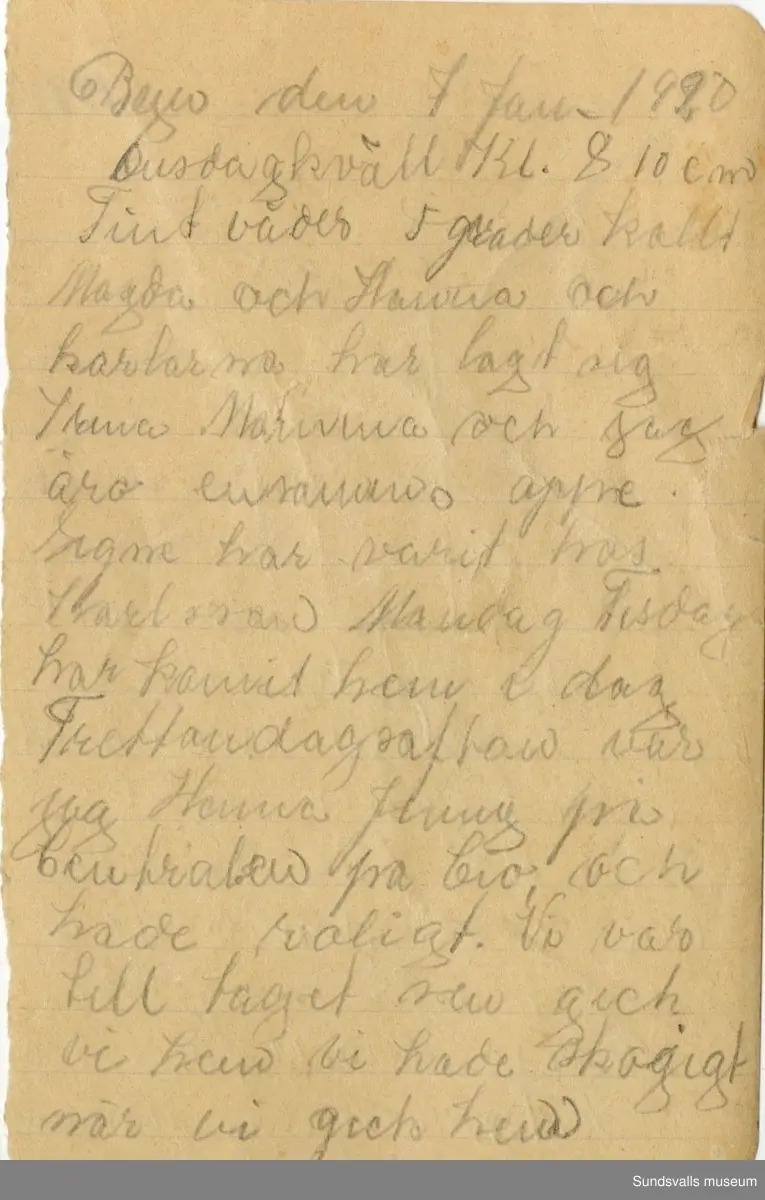 Berg den 7 Jan. 1920
Onsdagkväll Kl. 8 10 em
Fint väder 5 grader kallt
Magda och Hanna och
karlarna har lagt sig
Hanna Malvina och jag
äro ensamma oppe.
Signe har varit hos
Karlsson Mandag Tisdag
har komit hem i dag
Trettondagsafton var
jag Hanna på
Centralen pa bio och
hade roligt. Vi var
till taget sen geck
vi hem vi hade skogigt
när vi geck hem
Sundsvalls museum